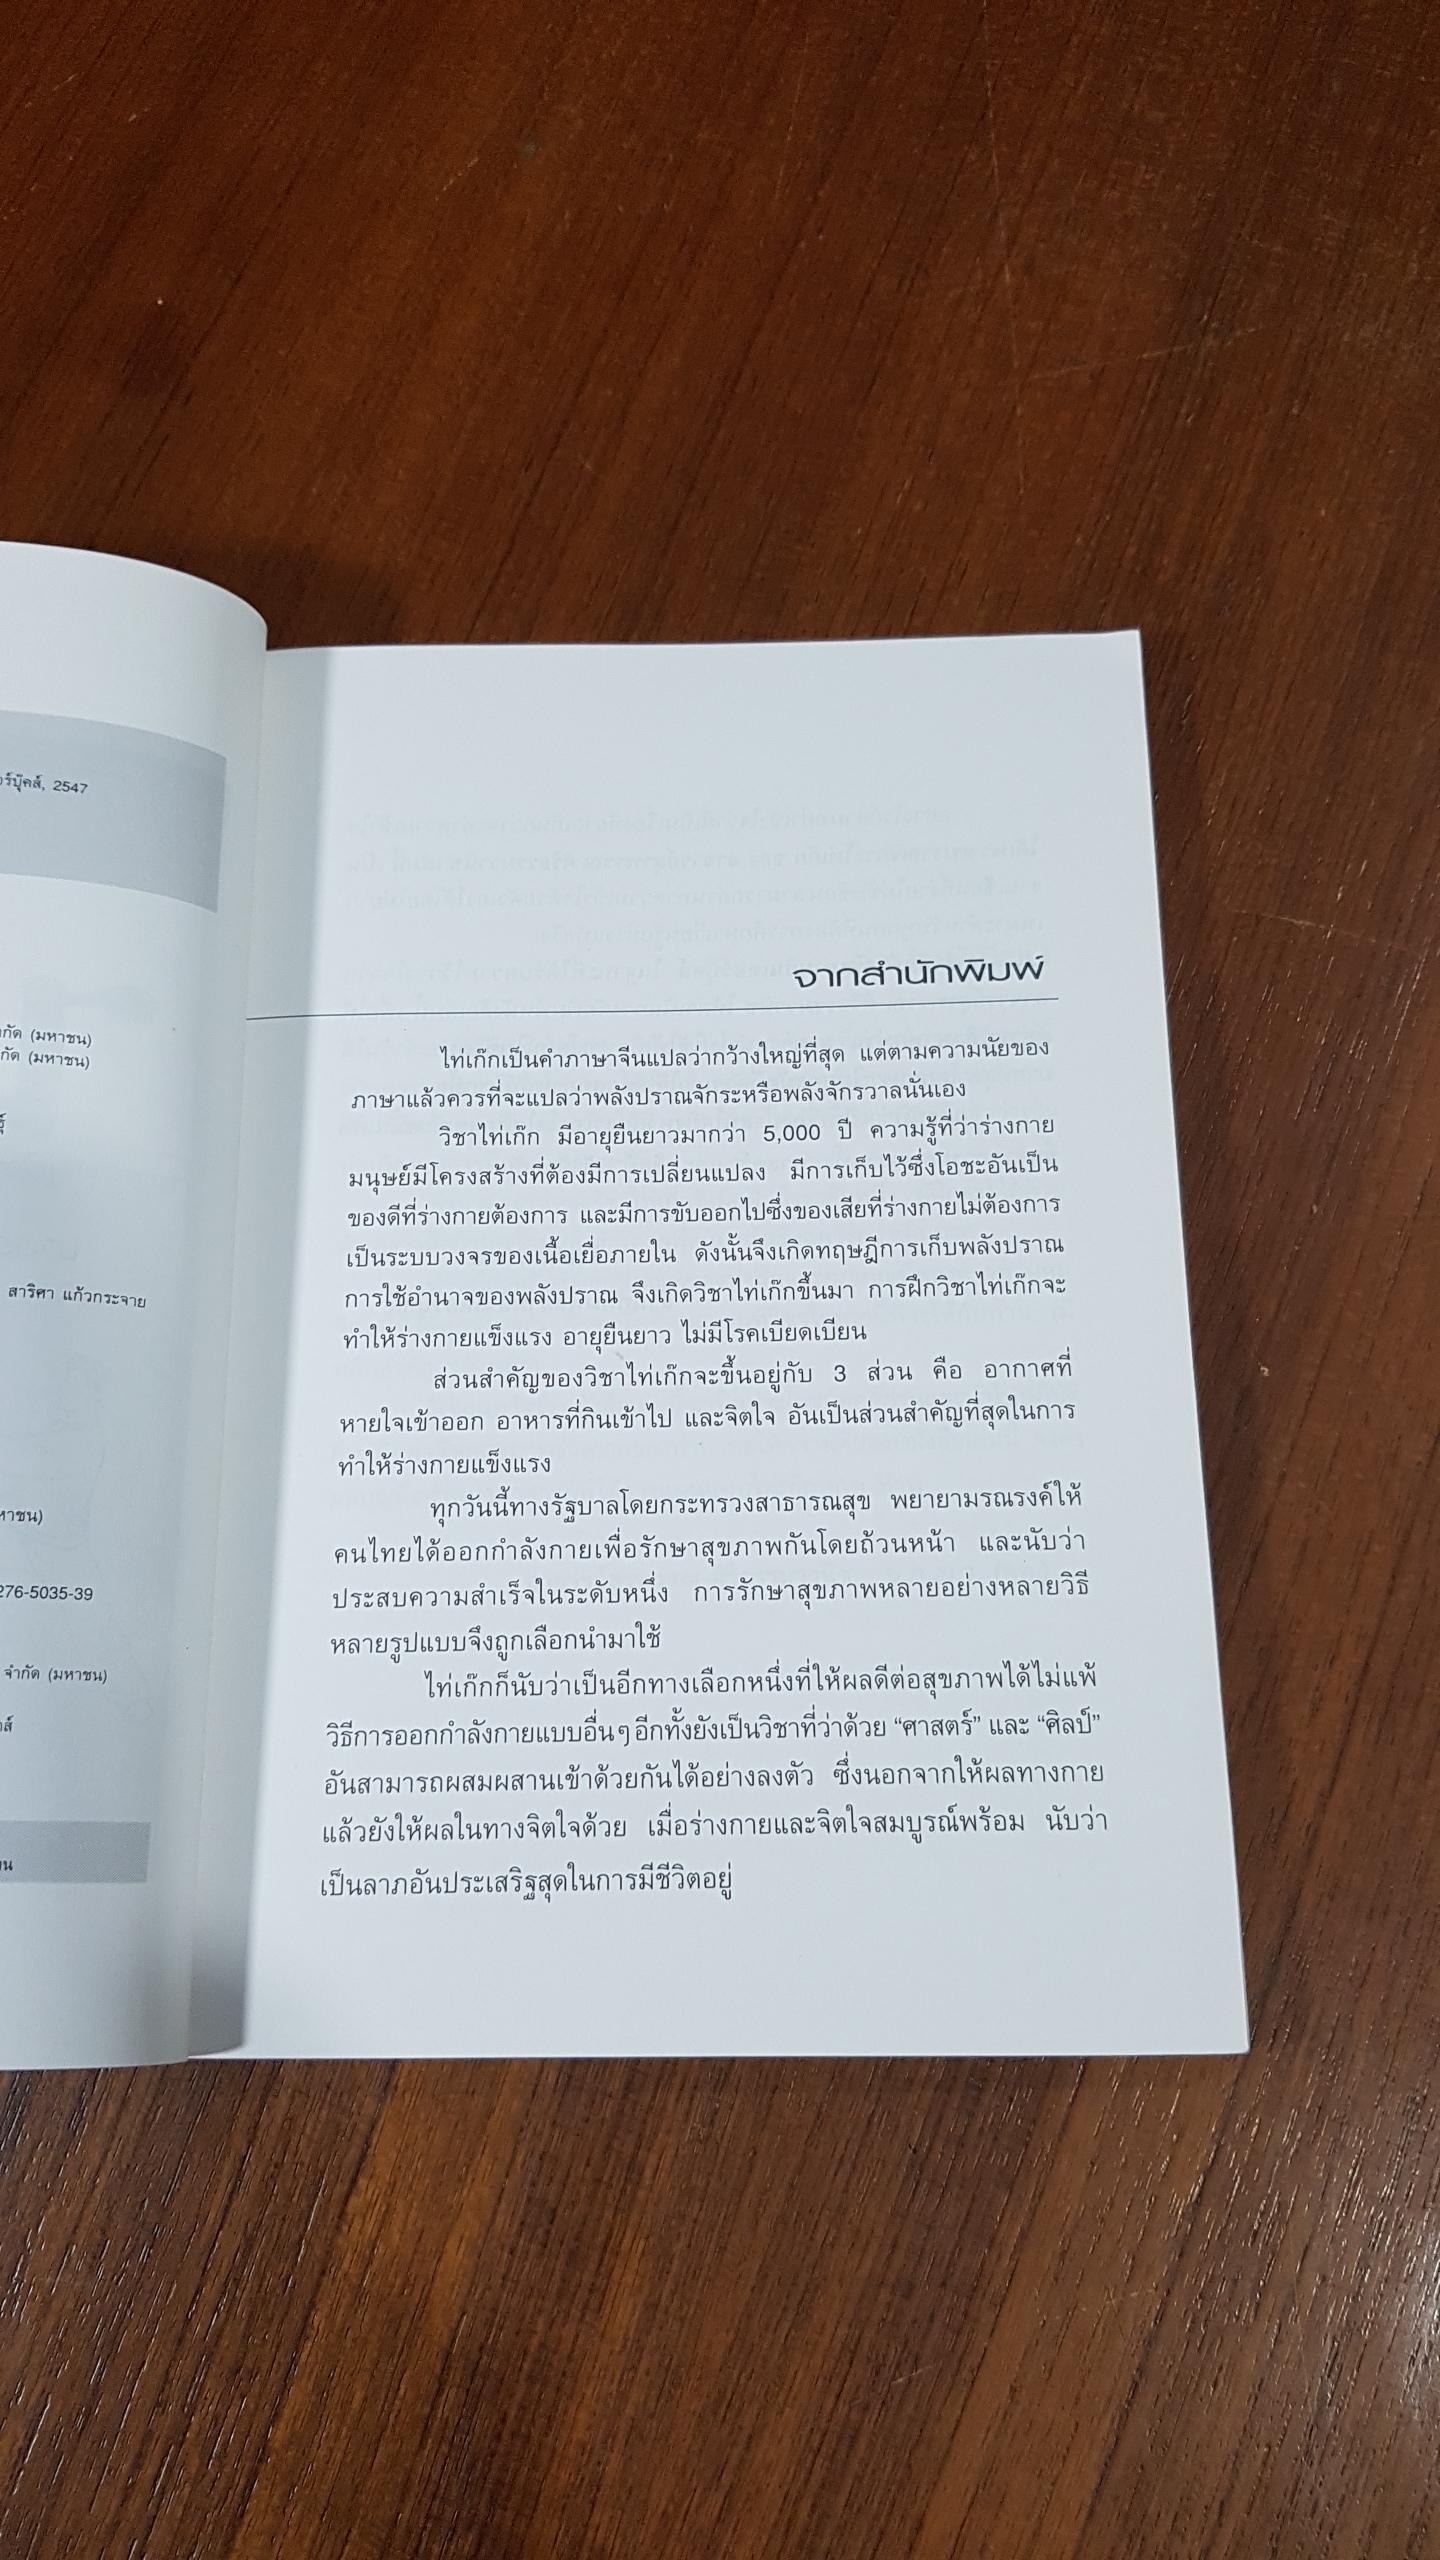 2547
(มหาชน)
(มหาชน)
สาริศา แก้วกระจาย
276-5035-39
จำกัด (มหาชน)
จากสำนักพิมพ์
ไท่เก๊กเป็นคำภาษาจีนแปลว่ากว้างใหญ่ที่สุด แต่ตามความนัยของ
ภาษาแล้วควรที่จะแปลว่าพลังปราณจักระหรือพลังจักรวาลนั่นเอง
วิชาไท่เก๊ก มีอายุยืนยาวมากว่า 5,000 ปี ความรู้ที่ว่าร่างกาย
มนุษย์มีโครงสร้างที่ต้องมีการเปลี่ยนแปลง มีการเก็บไว้ซึ่งโอชะอันเป็น
ของดีที่ร่างกายต้องการ และมีการขับออกไปซึ่งของเสียที่ร่างกายไม่ต้องการ
เป็นระบบวงจรของเนื้อเยื่อภายใน ดังนั้นจึงเกิดทฤษฎีการเก็บพลังปราณ
การใช้อำนาจของพลังปราณ จึงเกิดวิชาไท่เก๊กขึ้นมา การฝึกวิชาไท่เก๊กจะ
ทำให้ร่างกายแข็งแรง อายุยืนยาว ไม่มีโรคเบียดเบียน
ส่วนสำคัญของวิชาไท่เก๊กจะขึ้นอยู่กับ 3 ส่วน คือ อากาศที่
หายใจเข้าออก อาหารที่กินเข้าไป และจิตใจ อันเป็นส่วนสำคัญที่สุดในการ
ทำให้ร่างกายแข็งแรง
ทุกวันนี้ทางรัฐบาลโดยกระทรวงสาธารณสุข พยายามรณรงค์ให้
คนไทยได้ออกกำลังกายเพื่อรักษาสุขภาพกันโดยถ้วนหน้า และนับว่า
ประสบความสำเร็จในระดับหนึ่ง การรักษาสุขภาพหลายอย่างหลายวิธี
หลายรูปแบบจึงถูกเลือกนำมาใช้
ไท่เก๊กก็นับว่าเป็นอีกทางเลือกหนึ่งที่ให้ผลดีต่อสุขภาพได้ไม่แพ้
วิธีการออกกำลังกายแบบอื่นๆ อีกทั้งยังเป็นวิชาที่ว่าด้วย “ศาสตร์” และ “ศิลป์”
อันสามารถผสมผสานเข้าด้วยกันได้อย่างลงตัว ซึ่งนอกจากให้ผลทางกาย
แล้วยังให้ผลในทางจิตใจด้วย เมื่อร่างกายและจิตใจสมบูรณ์พร้อม นับว่า
เป็นลาภอันประเสริฐสุดในการมีชีวิตอยู่